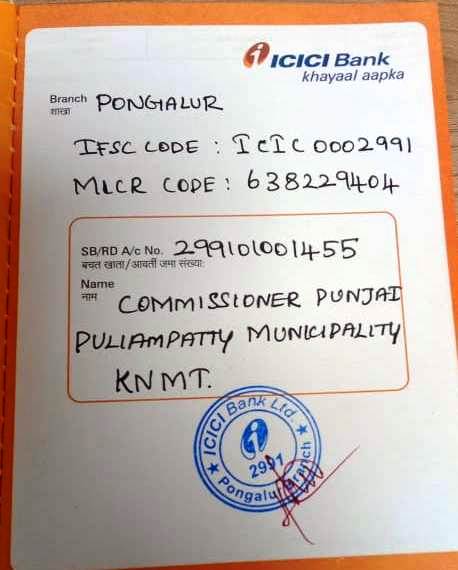 ICICI Bank
khayaal aapka
Branch PONGALUR
शाखा
IFSC CODE : ICIC0002991
MICR CODE : 638229404
SB/RD A/c No. 299101001455
बचत खाता/आवर्ती जमा संख्या:
Name
नाम
COMMISSIONER PUNJAI
PULIAMPATTY MUNICIPALITY
KNMT.
ICICI Bank Ltd.
2991
Pongalur Branch